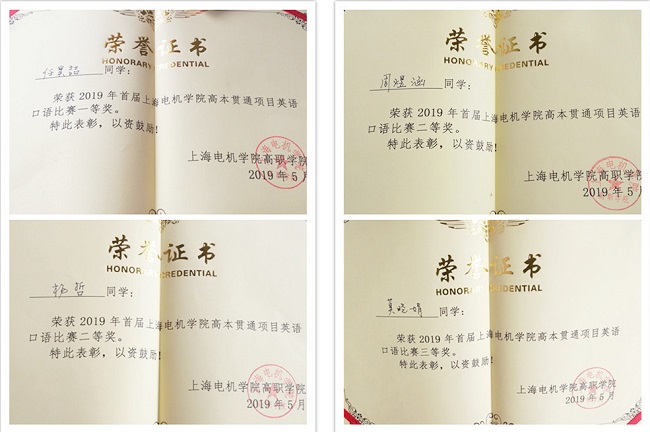 荣誉证书
HONORARY CREDENTIAL
同学：
荣获2019年首届上海电机学院高本贯通项目英语
口语比赛一等奖。
特此表彰，以资鼓励！
上海电机学院高职学院
2019年5月
荣誉证书
HONORARY CREDENTIAL
周煜涵 同学：
荣获2019年首届上海电机学院高本贯通项目英语
口语比赛二等奖。
特此表彰，以资鼓励！
上海电机学院高职学院
2019年5月
荣誉证书
HONORARY CREDENTIAL
哲 同学：
荣获2019年首届上海电机学院高本贯通项目英语
口语比赛二等奖。
特此表彰，以资鼓励！
上海电机学院高职学院
2019年5月
荣誉证书
HONORARY CREDENTIAL
莫晓娟 同学：
荣获2019年首届上海电机学院高本贯通项目英语
口语比赛三等奖。
特此表彰，以资鼓励！
上海电机学院高职学院
2019年5月